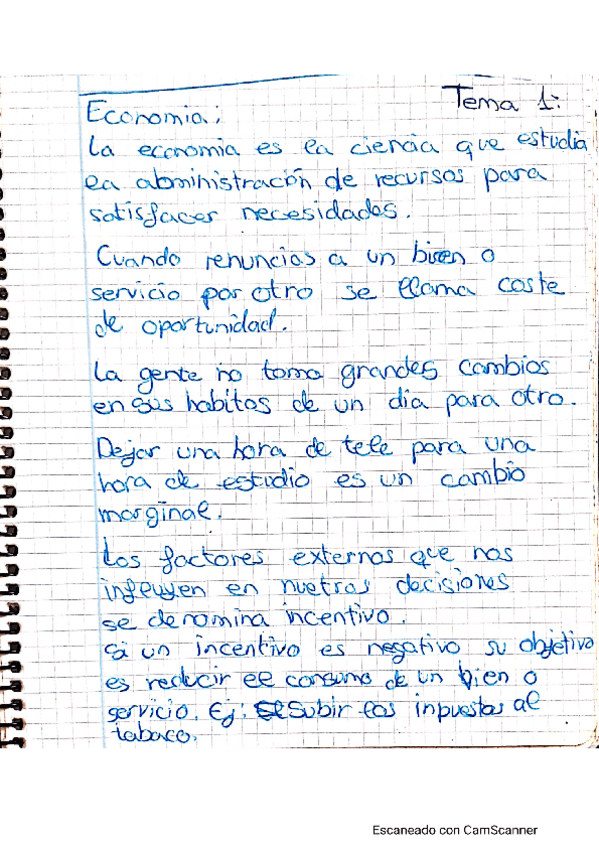 Tema 1:
Economia:
La economia es la ciencia que estudia
la administración de recursos para
satisfacer necesidades.
Cuando renuncias a un bien o
servicio por otro se llama coste
de oportunidad.
La gente no toma grandes cambios
en sus habitos de un dia para otro.
Dejar una hora de tele para una
hora de estudio es un cambio
marginal.
Los factores externos que nos
influyen en nuetras decisiones
se denomina incentivo.
Si un incentivo es negativo su objetivo
es reducir el consumo de un bien o
servicio. Ej: Subir los inpuestos al
tabaco.
Escaneado con CamScanner